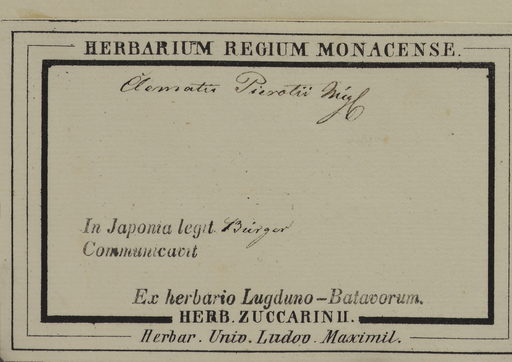 HERBARIUM REGIUM MONACENSE.
Clematis Pierotii Miq
In Japonia legit Bürger
Communicavit
Ex herbario Lugduno-Batavorum.
HERB. ZUCCARINII.
Herbar. Univ. Ludov. Maximil.